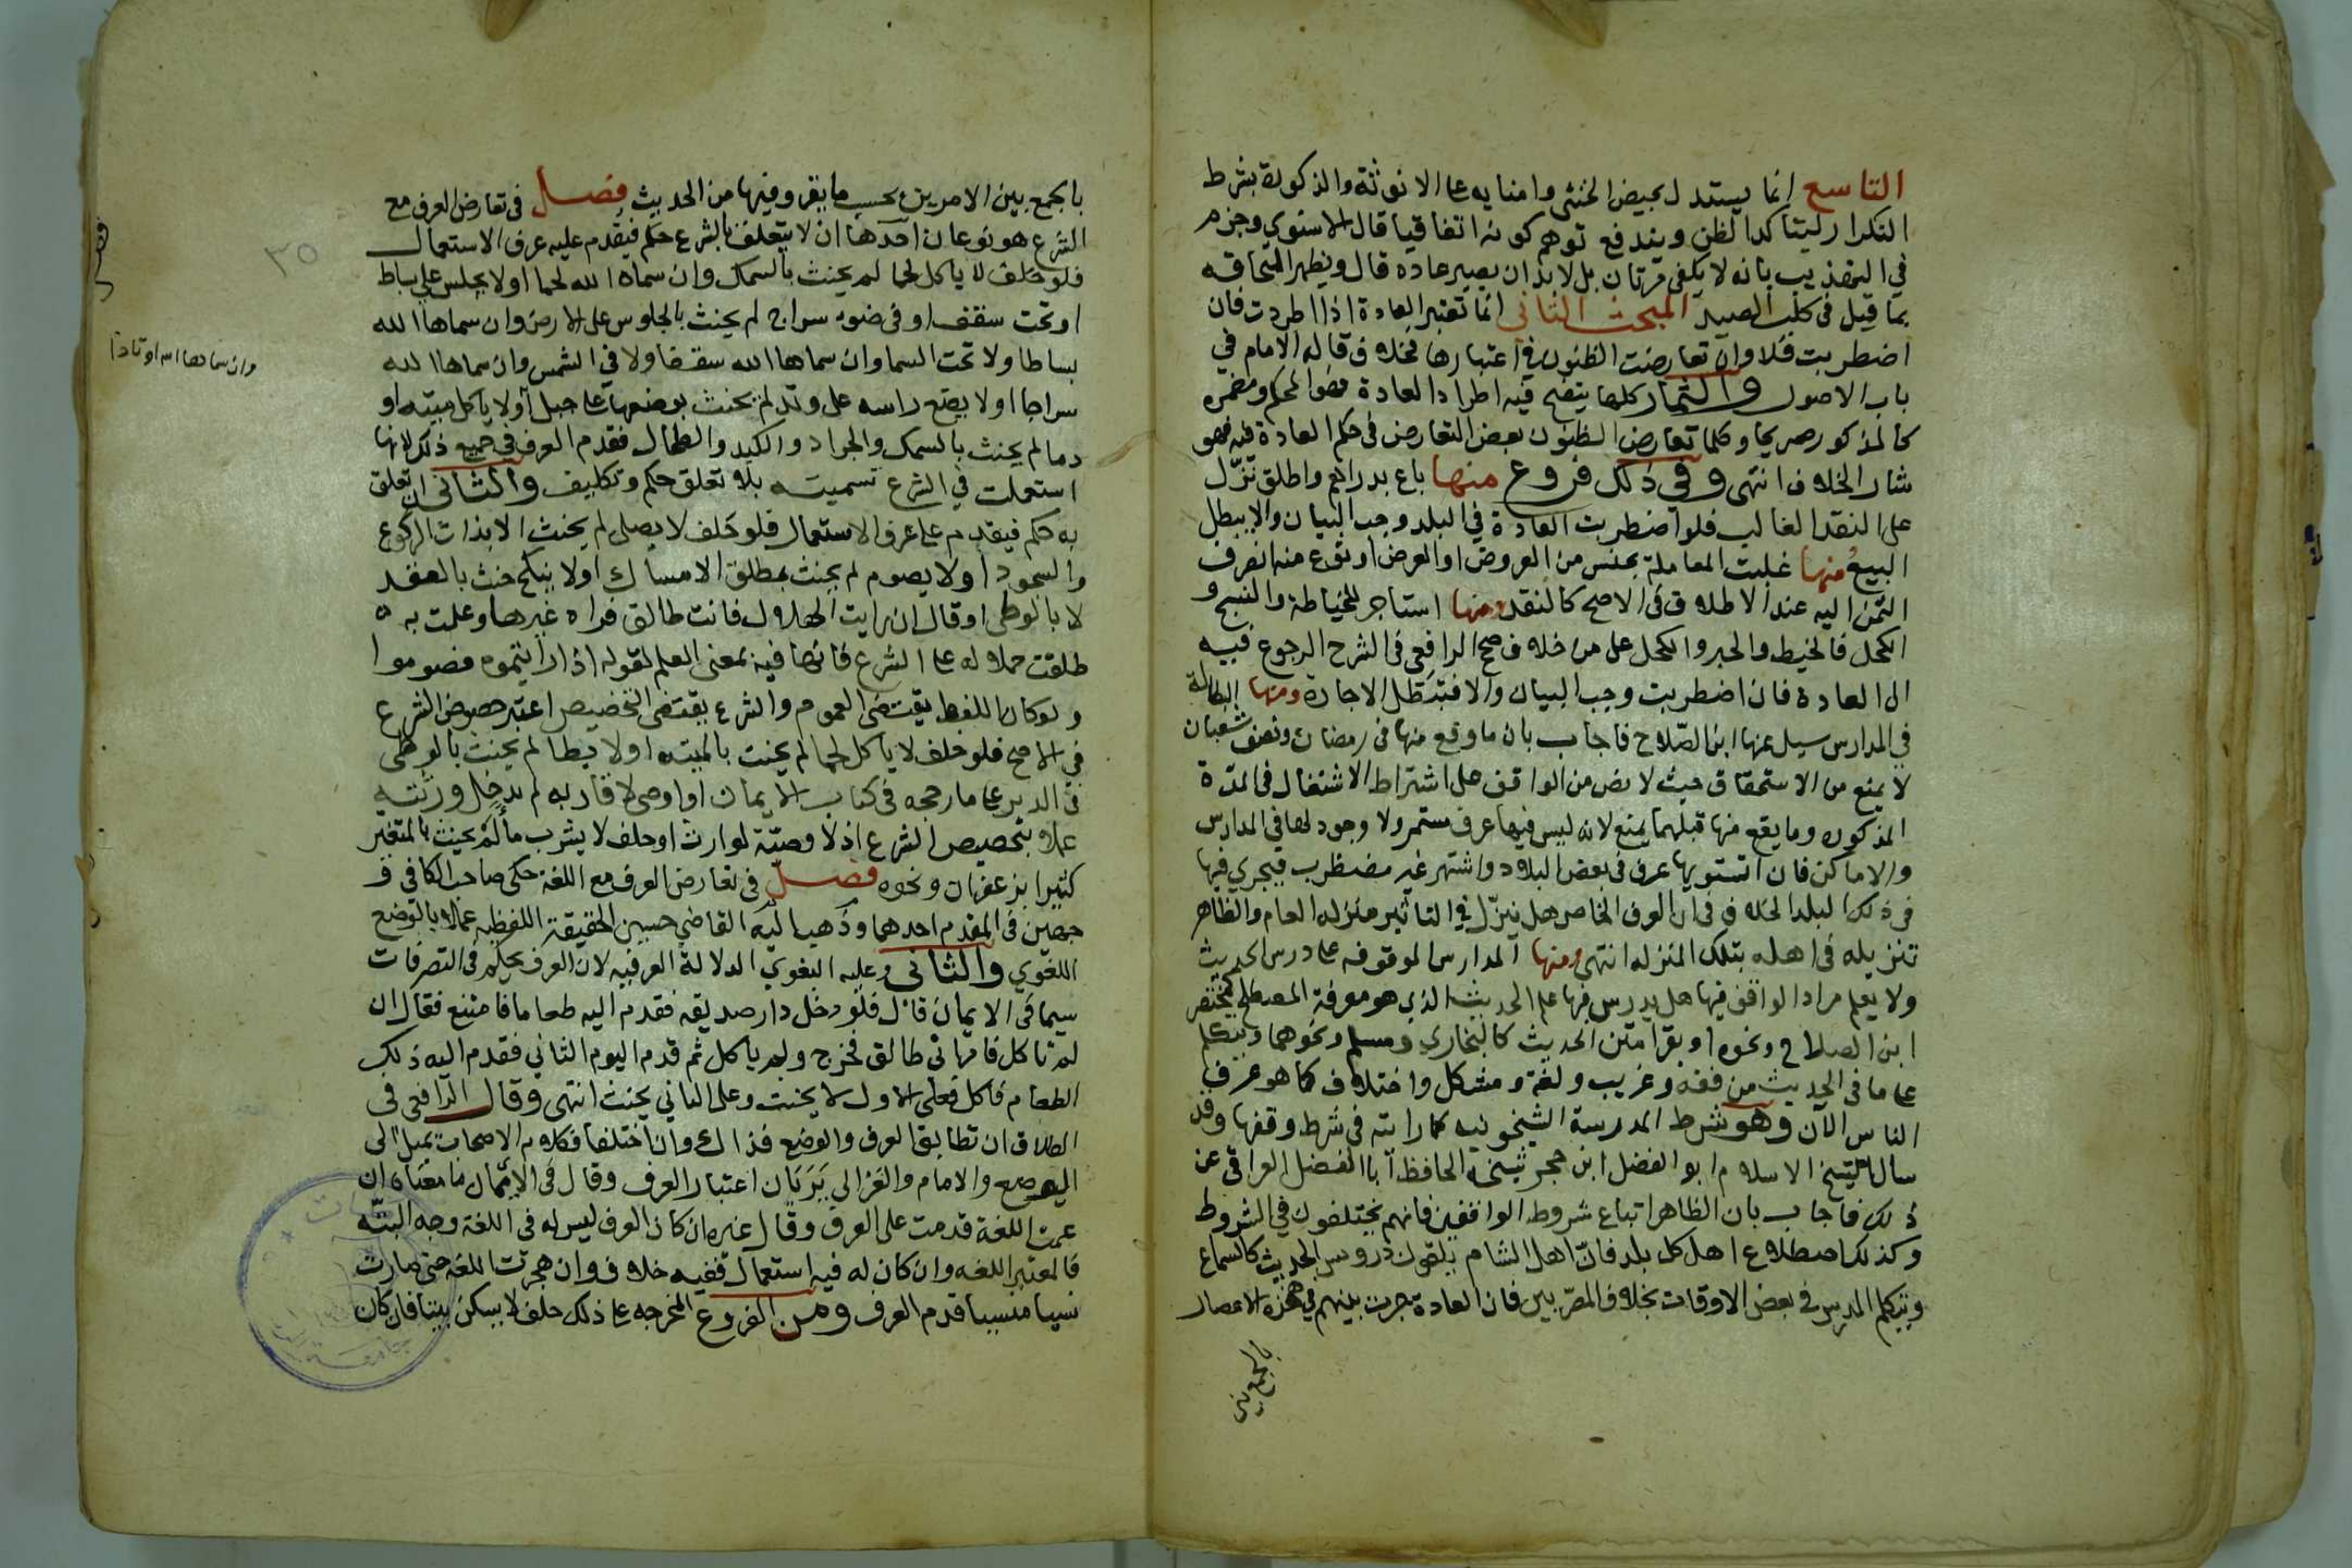 التاسع انما يستدل بحيض الخنثى وامنايه على الانوثة والذكورة بشرط
التكرار ليتاكد الظن ويندفع توهم كونه اتفاقيا قال الاسنوي وجزم
في التهذيب بانه لا يكفي مرتان بل لا بد ان يصير عادة قال ونظير التحاقه
بما قيل في كلب الصيد المبحث الثاني انما تعتبر العادة اذا اطردت فان
اضطربت فلا وان تعارضت الظنون في اعتبارها فخلاف قاله الامام في
باب الاصول والثمار كلما يتضح فيه اطراد العادة فهو المحكم ومضمره
كالمذكور صريحا وكلما تعارض الظنون بعض التعارض في حكم العادة فيه فهو
مثار الخلاف انتهى وفي ذلك فروع منها باع بدراهم واطلق تنزّل
على النقد الغالب فلو اضطربت العادة في البلد وجب البيان والا يبطل
البيع ومنها غلبت المعاملة بجنس من العروض او نوع منه انصرف
الثمن اليه عند الاطلاق في الاصح كالنقد ومنها استاجر للخياطة والنسج و
الكحل فالخيط والحبر والكحل على من خلاف صحح الرافعي في الشرح الرجوع فيه
الى العادة فان اضطربت وجب البيان والا فتبطل الاجارة ومنها البطالة
في المدارس سيل عنها ابن الصلاح فاجاب بان ما وقع منها في رمضان ونصف شعبان
لا يمنع من الاستحقاق حيث لا نص من الواقف على اشتراط الاشتغال في المدة
المذكورة وما يقع منها قبلهما يمنع لانه ليس فيها عرف مستمر ولا وجود لها في المدارس
والاماكن فان استمر بها عرف في بعض البلاد واشتهر غير مضطرب فيجري فيها
في ذلك البلد الخلاف في ان العرف الخاص هل ينزّل في التاثير منزلة العام والظاهر
تنزيله في اهله بتلك المنزله انتهى ومنها المدارس الموقوفه على درس الحديث
ولا يعلم مراد الواقف فيها هل يدرس فيها علم الحديث الذي هو معرفة المصطلح كمختصر
ابن الصلاح ونحوه او يقرا متن الحديث كالبخاري ومسلم ونحوهما ويتكلم
على ما في الحديث من فقه وغريب ولغة ومشكل واختلاف كما هو عرف
الناس الآن وهو شرط المدرسة الشيخونيه كما رايته في شرط وقفها وقد
سال شيخ الاسلام ابو الفضل ابن حجر شيخه الحافظ أبا الفضل العراقي عن
ذلك فاجاب بان الظاهر اتباع شروط الواقفين فانهم يختلفون في الشروط
وكذلك اصطلاح اهل كل بلد فان اهل الشام يلقون دروس الحديث كالسماع
ويتكلم المدرس في بعض الاوقات بخلاف المصريين فان العادة جرت بينهم في هذه الاعصار
بالجمع بين
بالجمع بين الامرين بحسب ما يقرء فيها من الحديث فصل في تعارض العرف مع
الشرع هو نوعان احدها ان لا يتعلق بالشرع حكم فيقدم عليه عرف الاستعمال
فلو حلف لا ياكل لحما لم يحنث بالسمك وان سماه الله لحما او لا يجلس على بساط
او تحت سقف او في ضوء سراج لم يحنث بالجلوس على الارض وان سماها الله
بساطا ولا تحت السما وان سماها الله سقفا ولا في الشمس وان سماها الله
سراجا او لا يضع راسه على وتد لم يحنث بوضعها على جبل او لا ياكل ميتة او
دما لم يحنث بالسمك والجراد والكبد والطحال فقدم العرف في جميع ذلك لانها
استعملت في الشرع تسمية بلا تعلق حكم وتكليف والثاني ان تعلق
به حكم فيقدم على عرف الاستعمال فلو حلف لا يصلي لم يحنث الا بذات الركوع
والسجود او لا يصوم لم يحنث بمطلق الامساك او لا ينكح حنث بالعقد
لا بالوطى او قال ان رايت الهلال فانت طالق فراه غيرها وعلمت به
طلقت حملا له على الشرع فانها فيه بمعنى العلم لقوله اذا رايتموه فصوموا
ولو كان اللفظ يقتضي العموم والشرع يقتضي التخصيص اعتبر خصوص الشرع
في الاصح فلو حلف لا ياكل لحما لم يحنث بالميته او لا يطا لم يحنث بالوطى
في الدبر على ما رجحه في كتاب الايمان او اوصى لاقاربه لم تدخل ورثته
عملا بتخصيص الشرع اذ لا وصيّة لوارث او حلف لا يشرب ما لم يحنث بالمتغير
كثيرا بزعفران ونحوه فصل في تعارض العرف مع اللغة حكى صاحب الكافي و
جهين في المقدم احدهما وذهب اليه القاضي حسين الحقيقة اللفظيه عملا بالوضع
اللغوي والثاني وعليه البغوي الدلالة العرفيه لان العرف يحكم في التصرفات
سيما في الايمان قال فلو دخل دار صديقه فقدم اليه طعاما فامتنع فقال ان
لم تاكل فامراتي طالق فخرج ولم ياكل ثم قدم اليوم الثاني فقدم اليه ذلك
الطعام فاكل فعلى الاول لا يحنث وعلى الثاني يحنث انتهى وقال الرافعي في
الطلاق ان تطابق العرف والوضع فذاك وان اختلفا فكلام الاصحاب يميل الى
الوضع والامام والغزالي يريان اعتبار العرف وقال في الايمان ما معناه ان
عمت اللغة قدمت على العرف وقال غيره ان كان العرف ليس له في اللغة وجه البتّه
فالمعتبر اللغه وان كان له فيه استعمال ففيه خلاف وان هجرت اللغة حتى صارت
نسيا منسيا قدم العرف ومن الفروع المخرجه على ذلك حلف لا يسكن بيتا فان كان
وان سماها الله اوتادا
٣٥